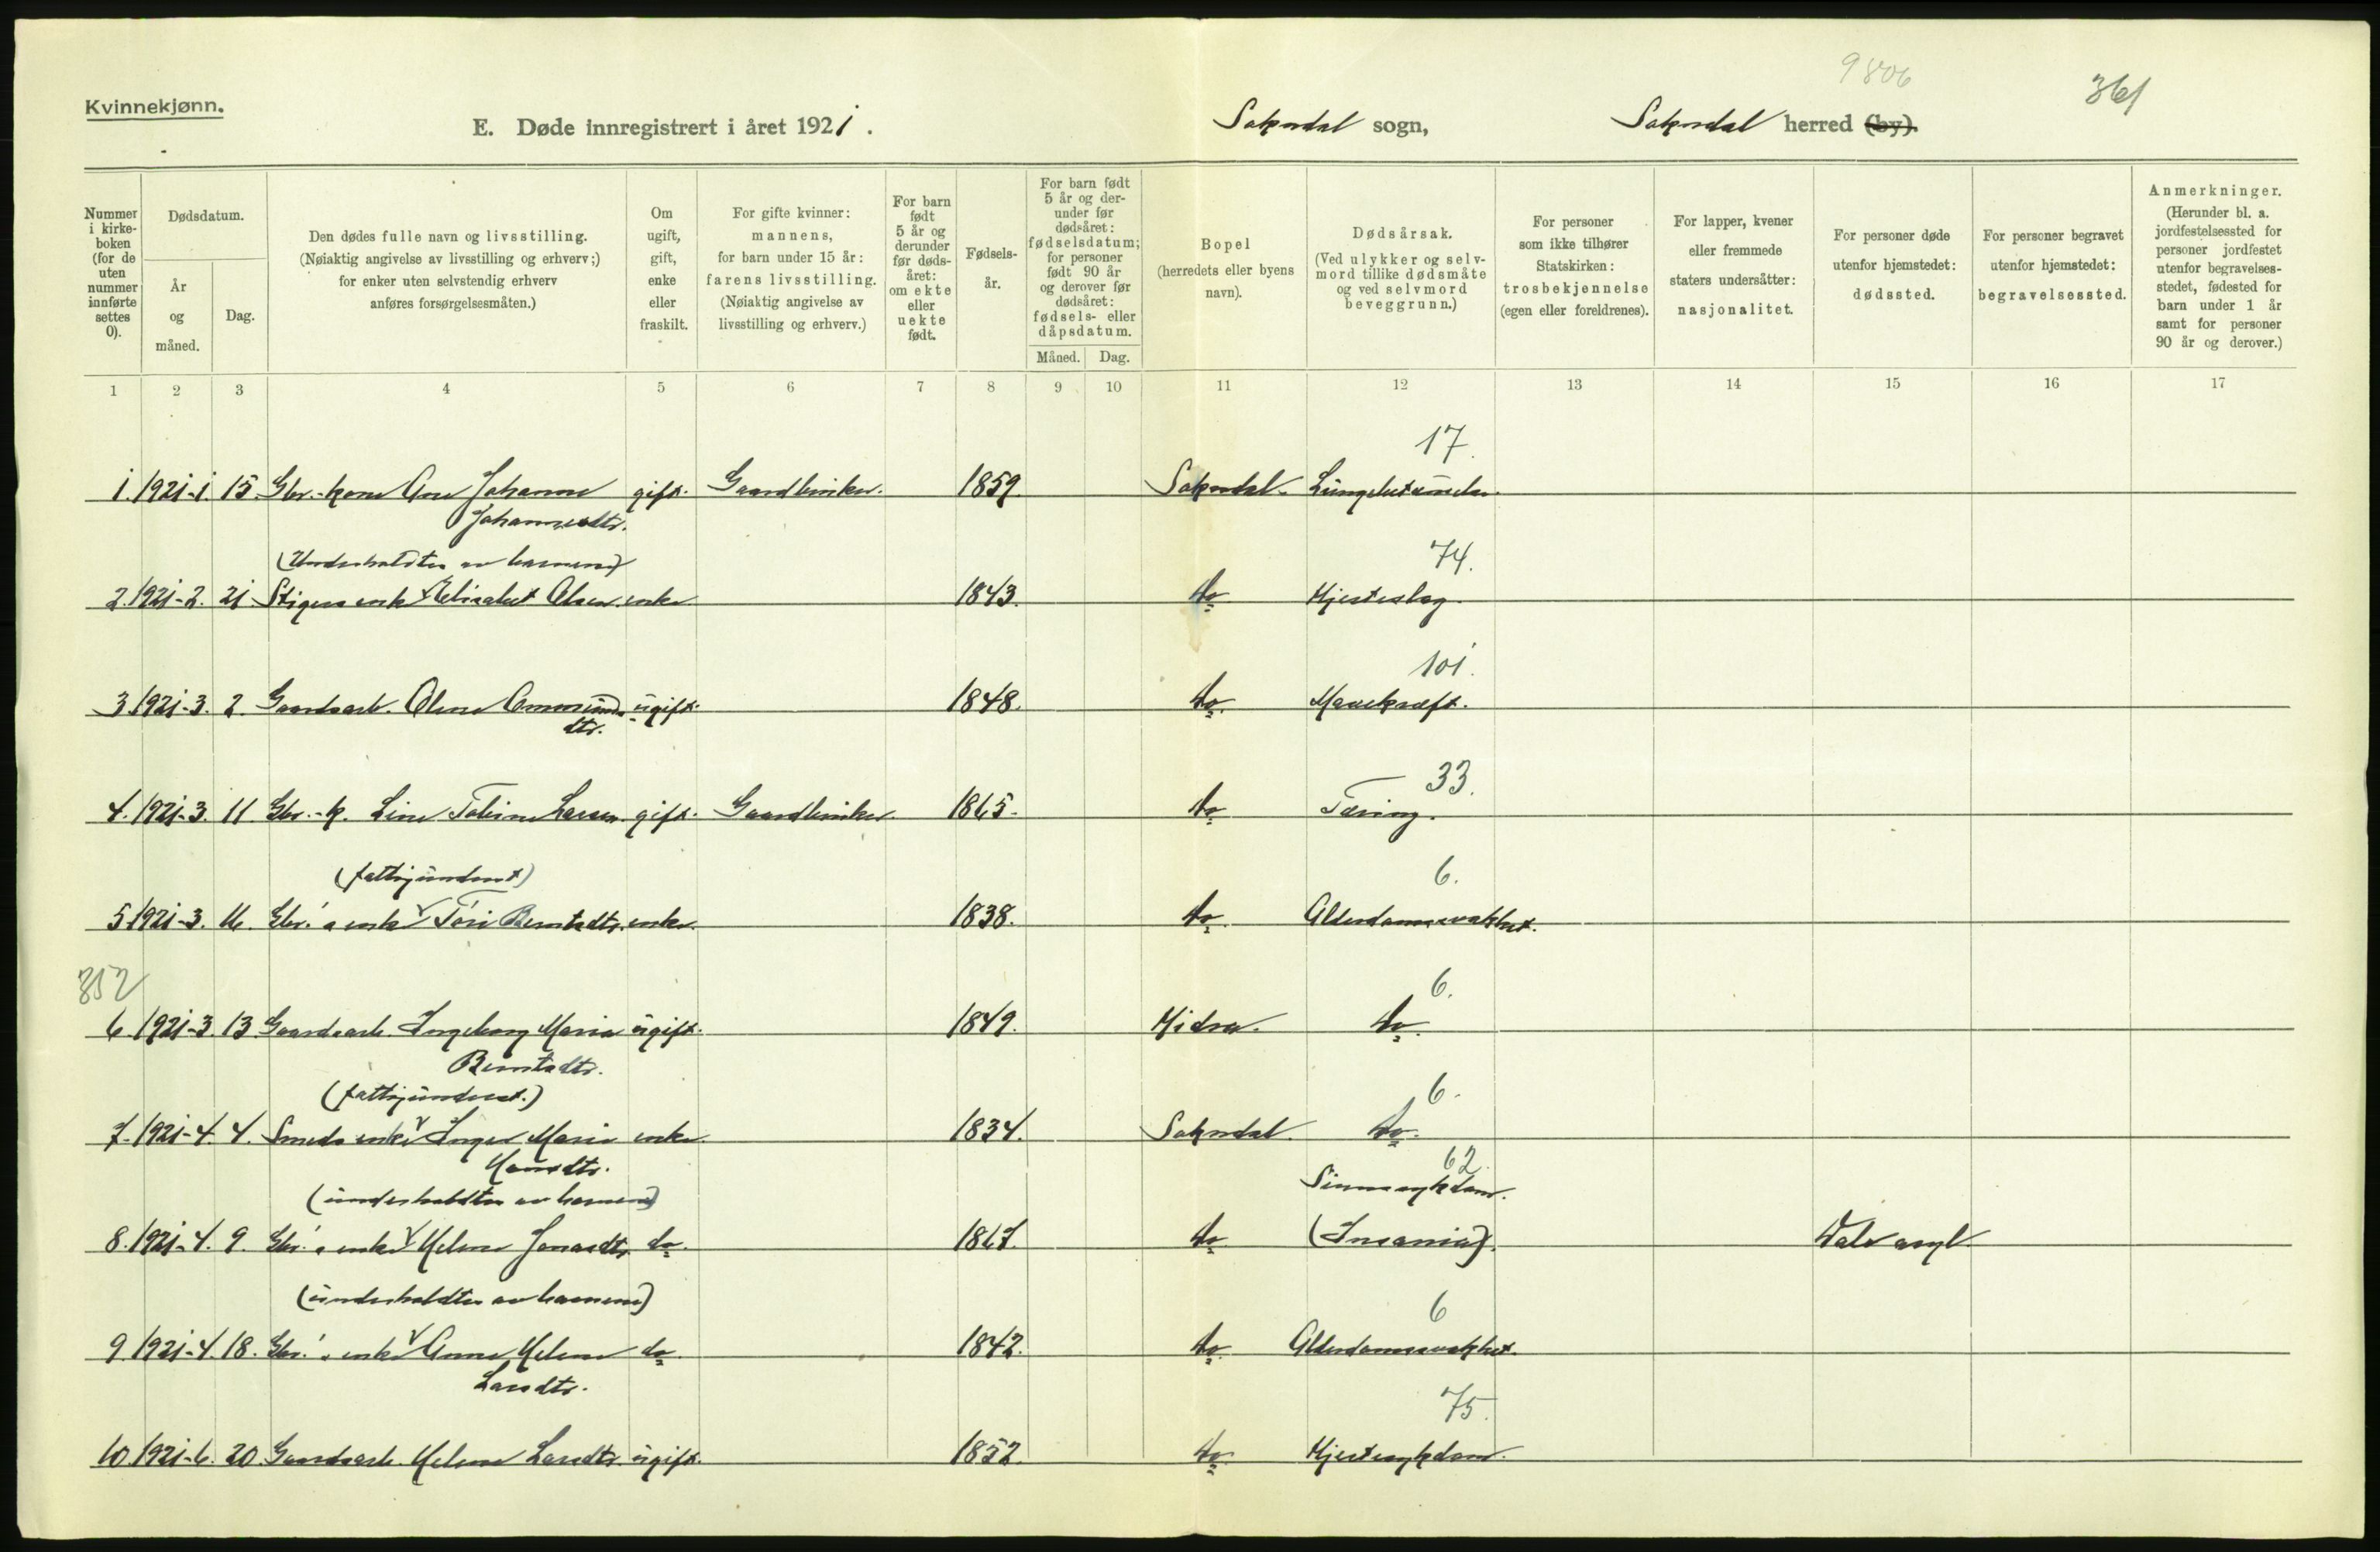 9806
361
Kvinnekjønn.
E. Døde innregistrert i året 1921. Sokndal sogn, Sokndal herred (by).
Nummer i kirkeboken (for de uten nummer innførte settes 0).
Dødsdatum.
År og måned.
Dag.
Den dødes fulle navn og livsstilling. (Nøiaktig angivelse av livsstilling og erhverv;) for enker uten selvstendig erhverv anføres forsørgelsesmåten.)
Om ugift, gift, enke eller fraskilt.
For gifte kvinner: mannens, for barn under 15 år: farens livsstilling. (Nøiaktig angivelse av livsstilling og erhverv.)
For barn født 5 år og derunder før dødsåret: om ekte eller uekte født.
Fødselsår.
For barn født 5 år og derunder før dødsåret: fødselsdatum; for personer født 90 år og derover før dødsåret: fødsels- eller dåpsdatum.
Måned. Dag.
Bopel (herredets eller byens navn).
Dødsårsak. (Ved ulykker og selvmord tillike dødsmåte og ved selvmord beveggrunn.)
For personer som ikke tilhører Statskirken: trosbekjennelse (egen eller foreldrenes).
For lapper, kvener eller fremmede staters undersåtter: nasjonalitet.
For personer døde utenfor hjemstedet: dødssted.
For personer begravet utenfor hjemstedet: begravelsessted.
Anmerkninger. (Herunder bl. a. jordfestelsessted for personer jordfestet utenfor begravelsesstedet, fødested for barn under 1 år samt for personer 90 år og derover.)
1 2 3 4 5 6 7 8 9 10 11 12 13 14 15 16 17
17.
1. 1921-1 15. Gbr.-kone Ane Johanne gift. Gaardbruker. 1859. Sokndal. Lungebetændelse.
Johannesdtr.
(Underholdtes av barnene) 74.
2. 1921-2. 21. Stigers enke Elisabet Olsen. enke. 1843. do Hjerteslag.
101.
3. 1921-3. 2. Gaardsarb. Olene Ommunds ugift. 1848. do. Mavekræft.
dtr.
33.
4. 1921-3. 11. Gbr.-k. Line Tobine Larsen. gift. Gaardbruker. 1865. do Tæring.
(fattigunderst) 6.
5. 1921-3. 16. Gbr.'s enke Tori Berntsdtr. enke. 1838. do. Alderdomssvakhet.
352 6.
6. 1921-3. 13. Gaardsarb. Ingeborg Maria ugift. 1849. Hidra. do.
Berntsdtr.
(fattigunderst.) 6.
7. 1921-4. 4. Smeds enke Inger Maria enke 1834. Sokndal. do.
Hansdtr. 62.
(underholdtes av barnene) Sinnssykdom.
8. 1921-4. 9. Gbr.'s enke Helene Jonasdtr. do. 1867. do (Insania). Dale asyl.
(underholdtes av barnene) 6
9. 1921-4. 18. Gbr.'s enke Anne Helene do. 1842. do. Alderdomssvakhet.
Larsdtr.
75.
10. 1921-6. 20. Gaardsarb. Helene Larsdtr. ugift. 1852. do. Hjertesykdom.